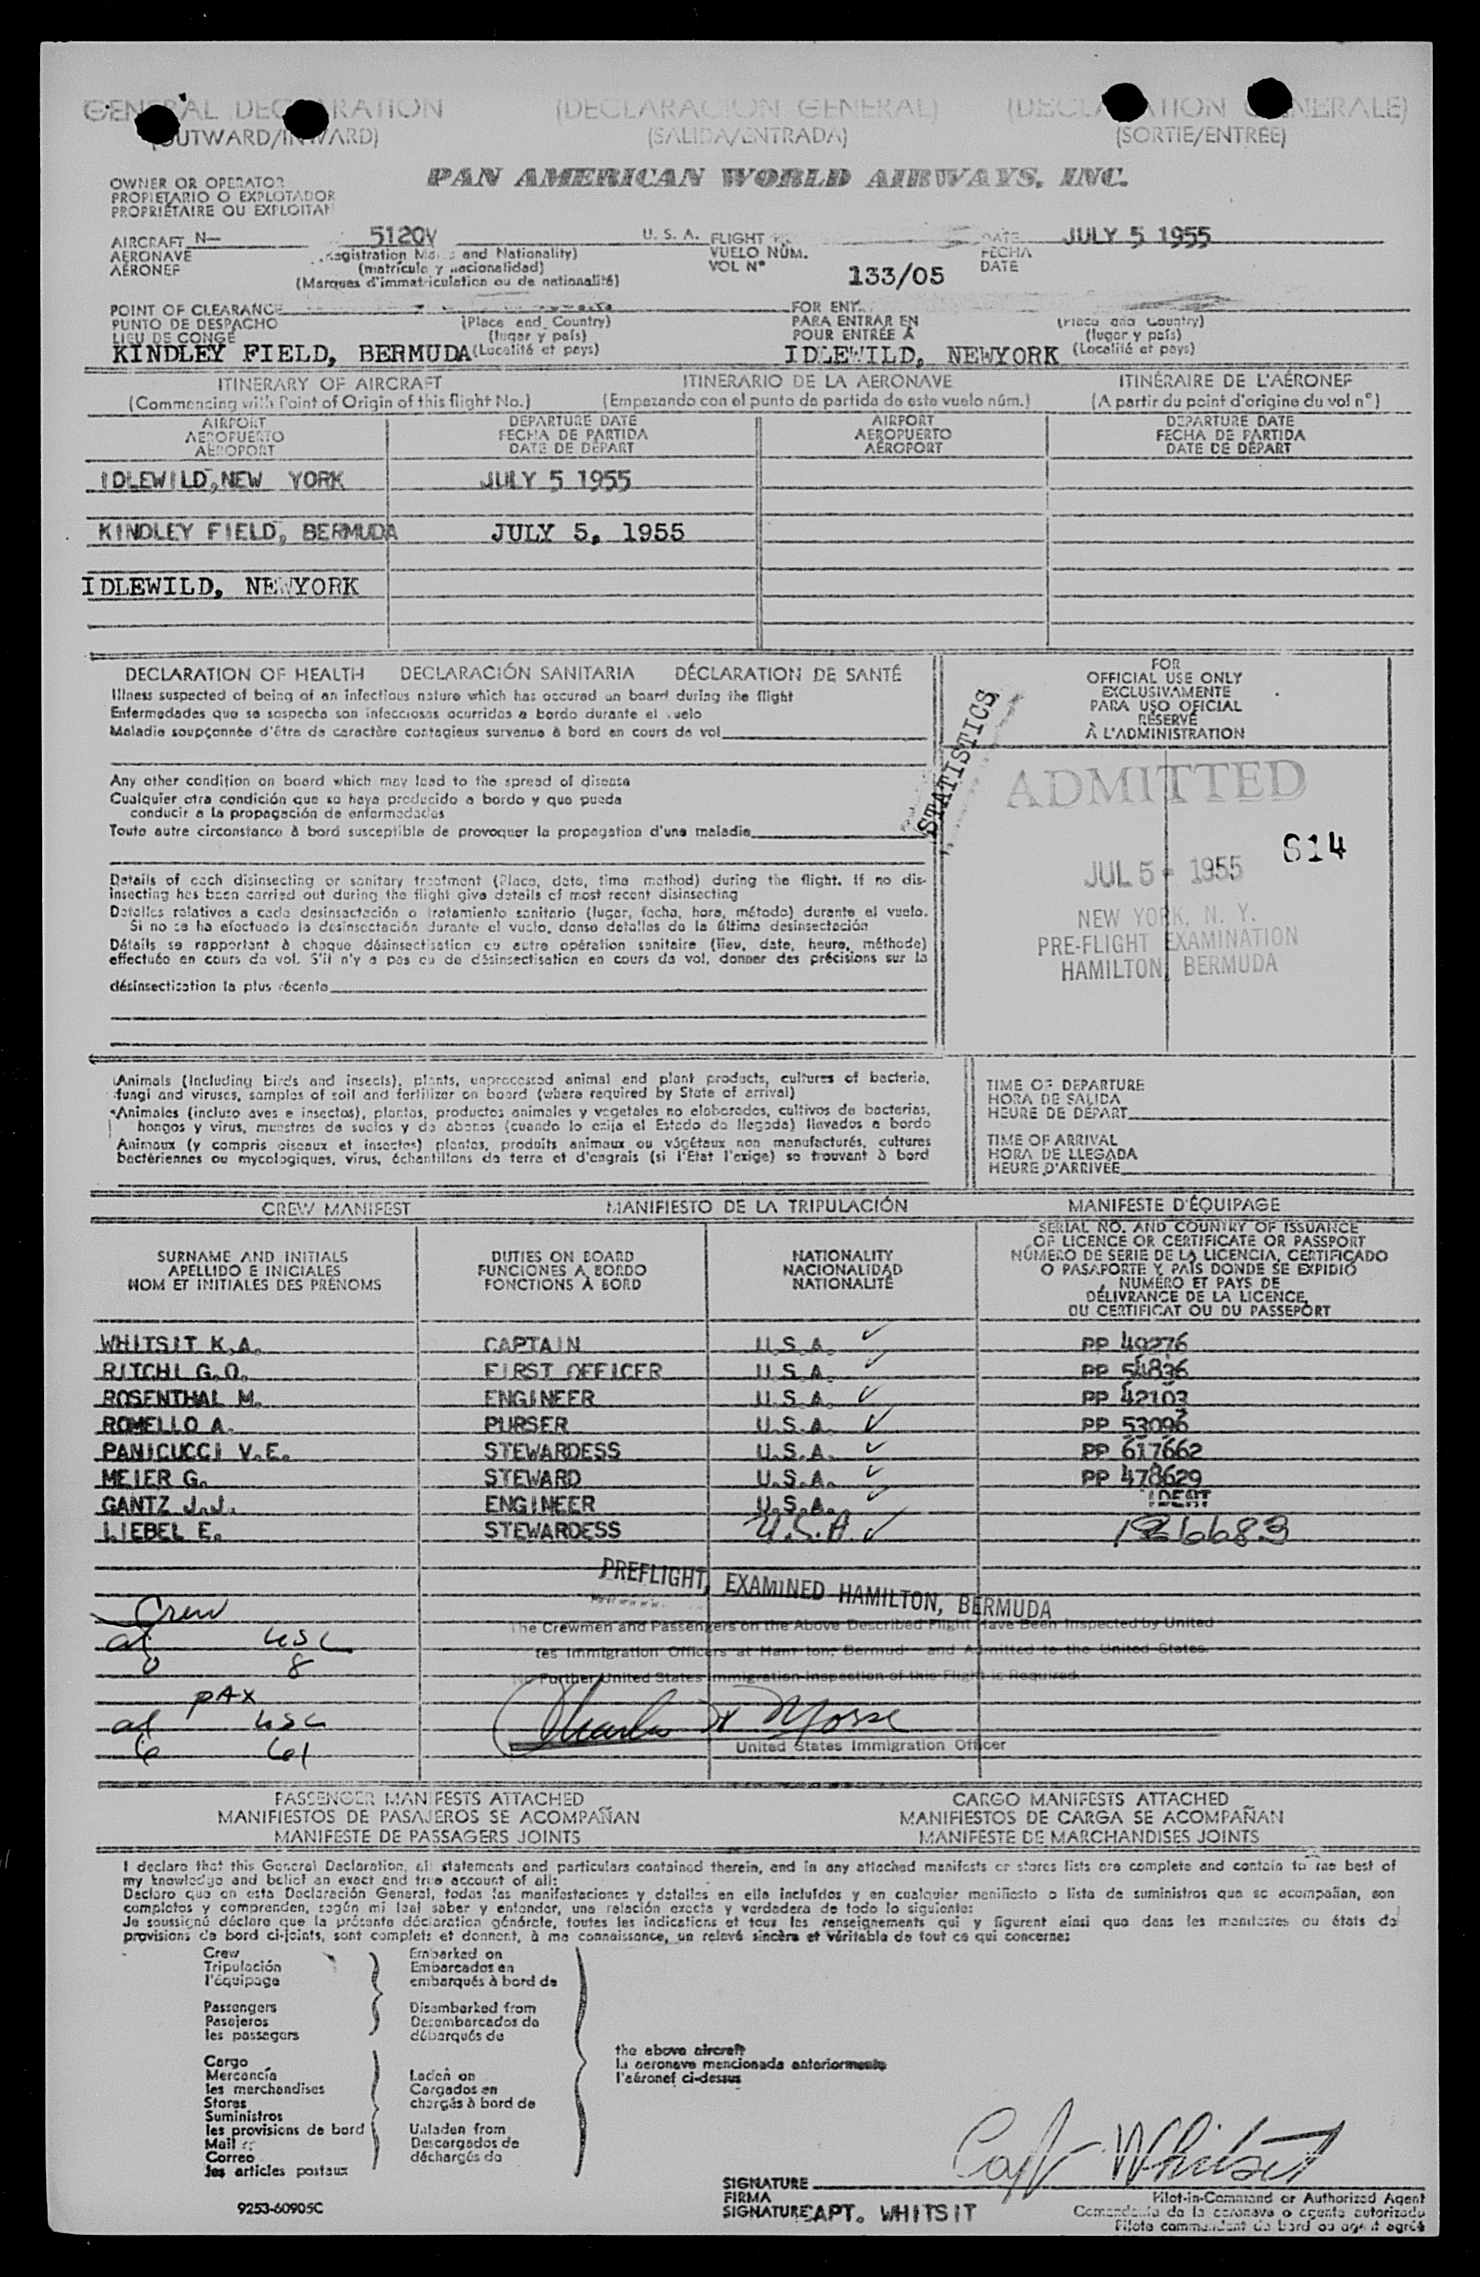 GENERAL DECLARATION (DECLARACION GENERAL) (DECLARATION GENERALE)
(OUTWARD/INWARD) (SALIDA/ENTRADA) (SORTIE/ENTRÉE)
OWNER OR OPERATOR PAN AMERICAN WORLD AIRWAYS, INC.
PROPIETARIO O EXPLOTADOR
PROPRIÉTAIRE OU EXPLOITAN
AIRCRAFT N— 5120V U. S. A. FLIGHT DATE JULY 5 1955
AERONAVE (Registration Marks and Nationality) VUELO NÚM. FECHA
AÉRONEF (matrícula y nacionalidad) VOL Nº 133/05 DATE
(Marques d'immatriculation ou de nationalité)
POINT OF CLEARANCE FOR ENT
PUNTO DE DESPACHO (Place and Country) PARA ENTRAR EN (Place and Country)
LIEU DE CONGÉ (lugar y país) POUR ENTRÉE À (lugar y país)
KINDLEY FIELD, BERMUDA (Localité et pays) IDLEWILD, NEWYORK (Localité et pays)
ITINERARY OF AIRCRAFT ITINERARIO DE LA AERONAVE ITINÉRAIRE DE L'AÉRONEF
(Commencing with Point of Origin of this flight No.) (Empezando con el punto de partida de este vuelo núm.) (A partir du point d'origine du vol nº)
AIRPORT DEPARTURE DATE AIRPORT DEPARTURE DATE
AEROPUERTO FECHA DE PARTIDA AEROPUERTO FECHA DE PARTIDA
AÉROPORT DATE DE DÉPART AÉROPORT DATE DE DÉPART
IDLEWILD,NEW YORK JULY 5 1955
KINDLEY FIELD, BERMUDA JULY 5, 1955
IDLEWILD, NEWYORK
DECLARATION OF HEALTH DECLARACIÓN SANITARIA DÉCLARATION DE SANTÉ
Illness suspected of being of an infectious nature which has occured on board during the flight
Enfermedades que se sospecha son infecciosas ocurridas a bordo durante el vuelo
Maladie soupçonnée d'être de caractère contagieux survenue à bord en cours de vol
Any other condition on board which may lead to the spread of disease
Cualquier otra condición que se haya producido a bordo y que pueda
conducir a la propagación de enfermedades
Toute autre circonstance à bord susceptible de provoquer la propagation d'une maladie
Details of each disinsecting or sanitary treatment (Place, date, time method) during the flight. If no dis-
insecting has been carried out during the flight give details of most recent disinsecting
Detalles relativos a cada desinsectación o tratamiento sanitario (lugar, fecha, hora, método) durante el vuelo.
Si no se ha efectuado la desinsectación durante el vuelo, dense detalles de la última desinsectación
Détails se rapportant à chaque désinsectisation ou autre opération sanitaire (lieu, date, heure, méthode)
effectuée en cours de vol. S'il n'y a pas eu de désinsectisation en cours de vol, donner des précisions sur la
désinsectisation la plus récente
FOR
OFFICIAL USE ONLY
EXCLUSIVAMENTE
PARA USO OFICIAL
RÉSERVÉ
À L'ADMINISTRATION
STATISTICS
ADMITTED
614
JUL 5 - 1955
NEW YORK, N. Y.
PRE-FLIGHT EXAMINATION
HAMILTON, BERMUDA
Animals (Including birds and insects), plants, unprocessed animal and plant products, cultures of bacteria,
fungi and viruses, samples of soil and fertilizer on board (where required by State of arrival)
Animales (incluso aves e insectos), plantas, productos animales y vegetales no elaborados, cultivos de bacterias,
hongos y virus, muestras de suelos y de abonos (cuando lo exija el Estado de llegada) llevados a bordo
Animaux (y compris oiseaux et insectes) plantes, produits animaux ou végétaux non manufacturés, cultures
bactériennes ou mycologiques, virus, échantillons de terre et d'engrais (si l'Etat l'exige) se trouvant à bord
TIME OF DEPARTURE
HORA DE SALIDA
HEURE DE DÉPART
TIME OF ARRIVAL
HORA DE LLEGADA
HEURE D'ARRIVÉE
CREW MANIFEST MANIFIESTO DE LA TRIPULACIÓN MANIFESTE D'ÉQUIPAGE
SURNAME AND INITIALS
APELLIDO E INICIALES
NOM ET INITIALES DES PRÉNOMS
DUTIES ON BOARD
FUNCIONES A BORDO
FONCTIONS À BORD
NATIONALITY
NACIONALIDAD
NATIONALITÉ
SERIAL NO. AND COUNTRY OF ISSUANCE
OF LICENCE OR CERTIFICATE OR PASSPORT
NÚMERO DE SERIE DE LA LICENCIA, CERTIFICADO
O PASAPORTE Y PAÍS DONDE SE EXPIDIÓ
NUMÉRO ET PAYS DE
DÉLIVRANCE DE LA LICENCE,
OU CERTIFICAT OU DU PASSEPORT
WHITSIT K.A. CAPTAIN U.S.A. ✓ PP 49276
RITCHI G.O. FIRST OFFICER U.S.A. ✓ PP 54836
ROSENTHAL M. ENGINEER U.S.A. ✓ PP 42103
ROMELLO A. PURSER U.S.A. ✓ PP 53096
PANICUCCI V.E. STEWARDESS U.S.A. ✓ PP 617662
MEIER G. STEWARD U.S.A. ✓ PP 478629
GANTZ J.J. ENGINEER U.S.A. ✓ IDENT
LIEBEL E. STEWARDESS U.S.A. ✓ 126683
PREFLIGHT, EXAMINED HAMILTON, BERMUDA
The Crewmen and Passengers on the Above Described Flight Have Been Inspected by United
tes Immigration Officers at Hamilton, Bermuda and Admitted to the United States.
No Further United States Immigration Inspection of this Flight is Required.
Crew
al usc
0 8
PAX
al usc
6 61
Charles W Morse
United States Immigration Officer
PASSENGER MANIFESTS ATTACHED CARGO MANIFESTS ATTACHED
MANIFIESTOS DE PASAJEROS SE ACOMPAÑAN MANIFIESTOS DE CARGA SE ACOMPAÑAN
MANIFESTE DE PASSAGERS JOINTS MANIFESTE DE MARCHANDISES JOINTS
I declare that this General Declaration, all statements and particulars contained therein, and in any attached manifests or stores lists are complete and contain to the best of
my knowledge and belief an exact and true account of all:
Declaro que en esta Declaración General, todas las manifestaciones y detalles en ella incluídos y en cualquier manifiesto o lista de suministros que se acompañan, son
completos y comprenden, según mi leal saber y entender, una relación exacta y verdadera de todo lo siguiente:
Je soussigné déclare que la présente déclaration générale, toutes les indications et tous les renseignements qui y figurent ainsi que dans les manifestes ou états de
provisions de bord ci-joints, sont complets et donnent, à ma connaissance, un relevé sincère et véritable de tout ce qui concerne:
Crew Embarked on
Tripulación Embarcados en
l'équipage embarqués à bord de
Passengers Disembarked from
Pasajeros Desembarcados de
les passagers débarqués de
the above aircraft
la aeronave mencionada anteriormente
l'aéronef ci-dessus
Cargo
Mercancía Laden on
les marchandises Cargados en
Stores chargés à bord de
Suministros
les provisions de bord Unladen from
Mail Descargados de
Correo déchargés de
les articles postaux
9253-60905C
Capt Whitsit
SIGNATURE
FIRMA Pilot-in-Command or Authorized Agent
SIGNATURE CAPT. WHITSIT Comandante de la aeronave o agente autorizado
Pilote commandant de bord ou agent agréé